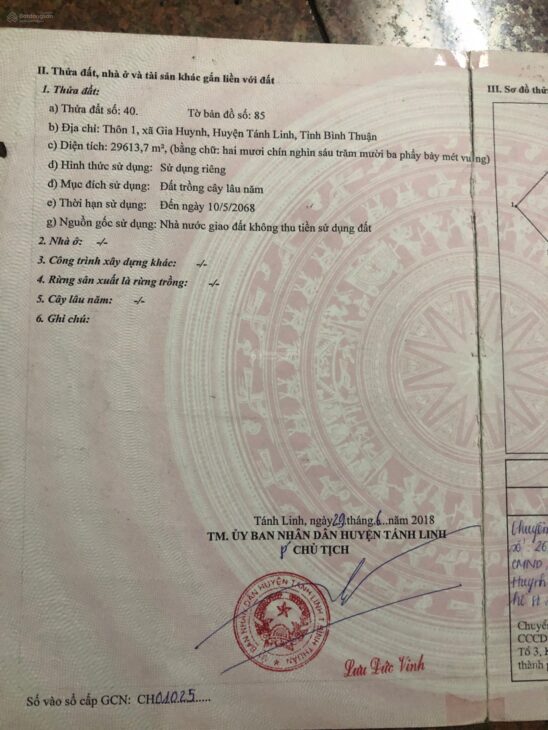 Batdongsan
II. Thửa đất, nhà ở và tài sản khác gắn liền với đất
1. Thửa đất:
a) Thửa đất số: 40. Tờ bản đồ số: 85
b) Địa chỉ: Thôn 1, xã Gia Huynh, Huyện Tánh Linh, Tỉnh Bình Thuận
c) Diện tích: 29613,7 m², (bằng chữ: hai mươi chín nghìn sáu trăm mười ba phẩy bảy mét vuông)
d) Hình thức sử dụng: Sử dụng riêng
đ) Mục đích sử dụng: Đất trồng cây lâu năm
e) Thời hạn sử dụng: Đến ngày 10/5/2068
g) Nguồn gốc sử dụng: Nhà nước giao đất không thu tiền sử dụng đất
2. Nhà ở: -/-
3. Công trình xây dựng khác: -/-
4. Rừng sản xuất là rừng trồng: -/-
5. Cây lâu năm: -/-
6. Ghi chú:
Tánh Linh, ngày 29 tháng 6 năm 2018
TM. ỦY BAN NHÂN DÂN HUYỆN TÁNH LINH
CHỦ TỊCH
ỦY BAN NHÂN DÂN HUYỆN TÁNH LINH T. BÌNH THUẬN
Lưu Đức Vinh
Số vào sổ cấp GCN: CH01025
III. Sơ đồ thửa
1
Chuyển
số: 26
CMND
Huynh
hồ sơ
Chuyể
CCCD
Tổ 3, K
thành p